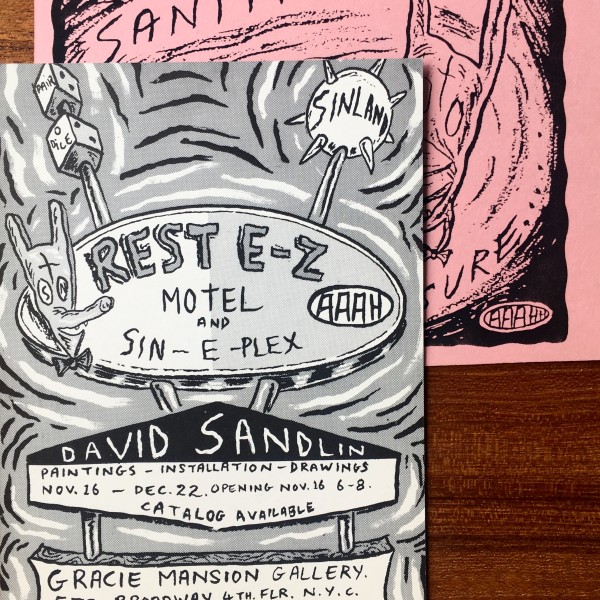 SANT
PAIR
O
DICE
SINLAND
REST E-Z
MOTEL
AND
SIN-E-PLEX
AAAH
SURE
AAAH
DAVID SANDLIN
PAINTINGS - INSTALLATION - DRAWINGS
NOV. 16 - DEC. 22. OPENING NOV. 16 6-8.
CATALOG AVAILABLE
GRACIE MANSION GALLERY.
BROADWAY 4TH. FLR. N.Y.C.